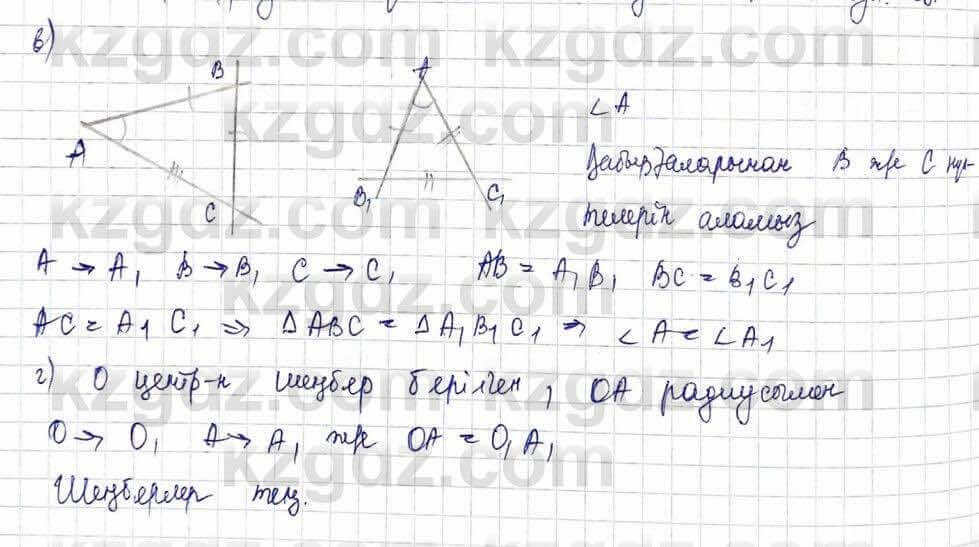 в)
B
A
C
A
B₁
C₁
∠A
қабырғаларынан B және C нүк-
телерін аламыз
A → A₁ B → B₁ C → C₁ AB = A₁B₁ BC = B₁C₁
AC = A₁C₁ ⇒ ΔABC = ΔA₁B₁C₁ ⇒ ∠A = ∠A₁
г) O центр-н шеңбер берілген, OA радиусымен
O → O₁ A → A₁ және OA = O₁A₁
Шеңберлер тең.
kzgdz.com kzgdz.com
kzgdz.com
kzgdz.com kzgdz.com
kzgdz.com
kzgdz.com kzgdz.com
kzgdz.com